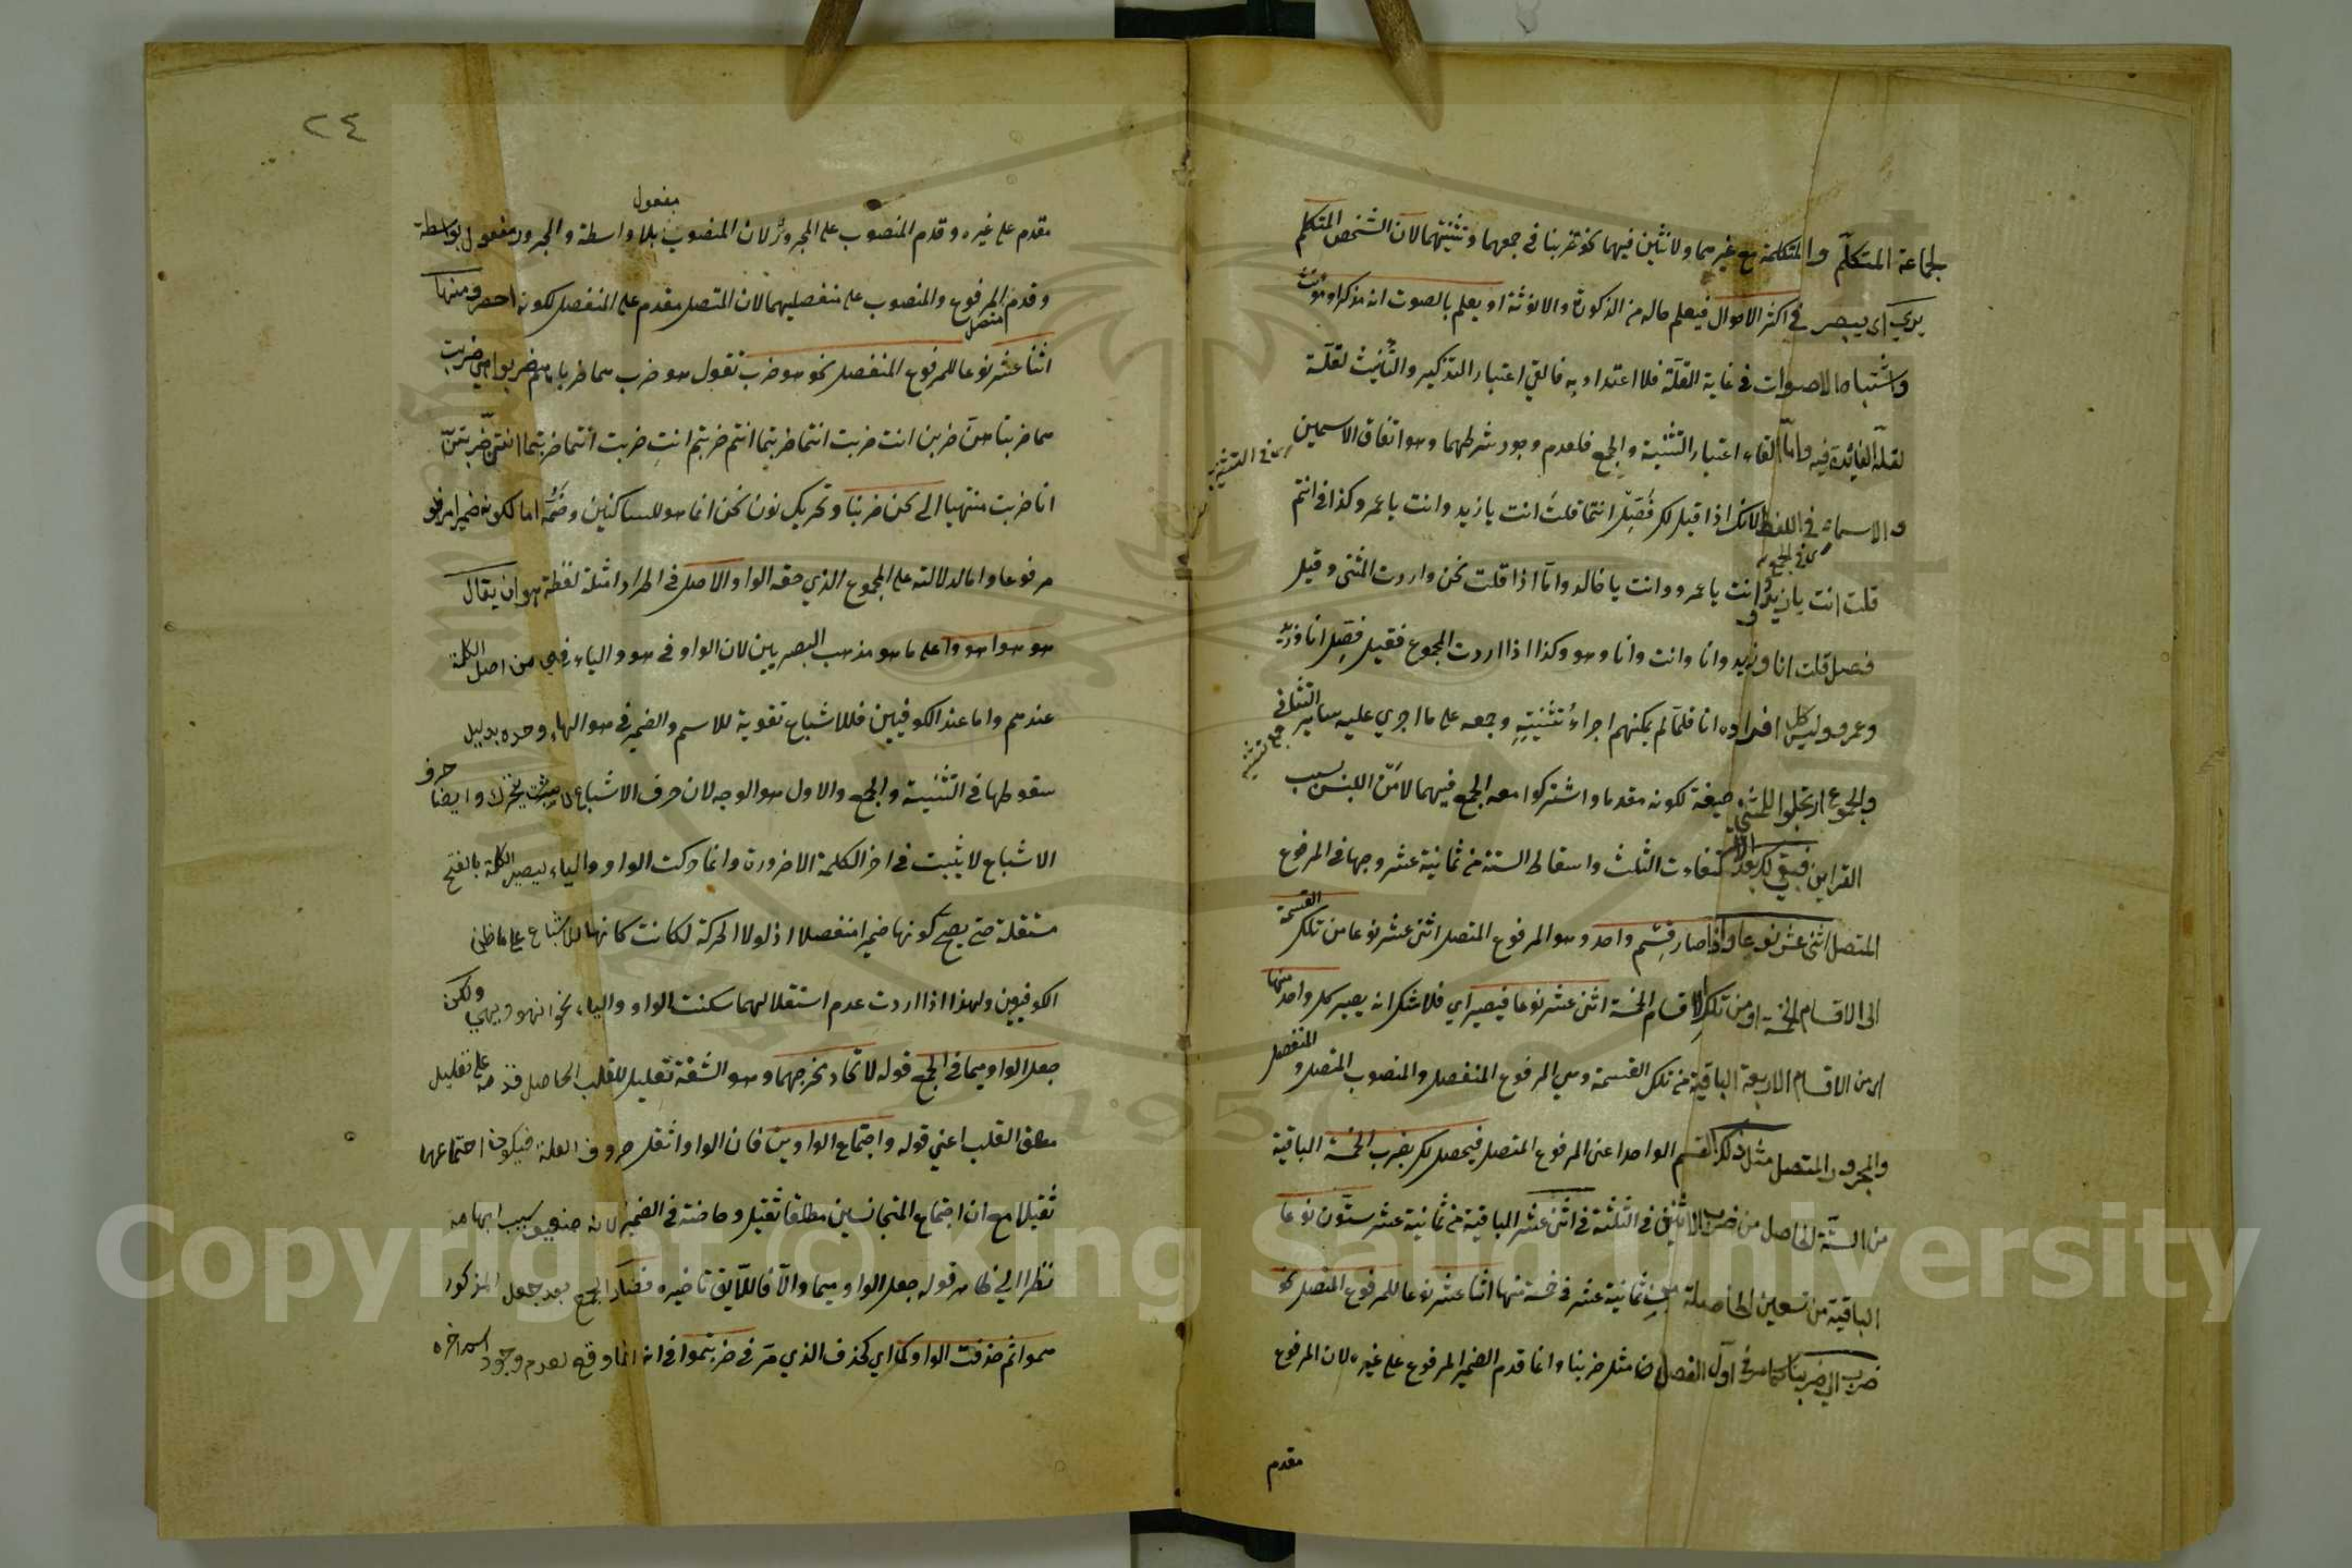 لجماعة المتكلم والمتكلمة مع غيرهما ولا تأنيث فيهما نحو ضربنا في جمعهما وتثنيتهما لان الشخص المتكلم
يري اي يبصر في اكثر الاحوال فيعلم حاله من الذكورة والانوثة او يعلم بالصوت انه مذكر او مؤنث
واشتباه الاصوات في غاية القلة فلا اعتداد به فالقي اعتبار التذكير والتأنيث لقلة
لقلة الفائدة فيه واما القاء اعتبار التثنية والجمع فلعدم وجود شرطهما وهو اتفاق الاسمين
اي في التثنية
والاسماء في اللفظ لانك اذا قيل لك فصّل انتما قلت انت يا زيد وانت يا عمرو وكذا في انتم
اي في الجمع
قلت انت يا زيد وانت يا عمرو وانت يا خالد واما اذا قلت نحن واردت المثنى وقيل
فصل قلت انا وزيد وانا وانت وانا وهو وكذا اذا اردت المجموع فقيل فصّل انا وزيد
وعمرو وليس كل افراده انا فلما لم يمكنهم اجراء تثنيته وجمعه على ما اجري عليه ساير التثاني
جمع تثنية
والجموع ارتجلوا للمثنى صيغة لكونه مقدما واشتركوا معه الجمع فيهما لامن اللبس بسبب
القراين فبقي لك بعد الغاءات الثلث واسقاط الستة من ثمانية عشر وجها في المرفوع
المتصل اثنى عشر نوعا واذا صار قسم واحد وهو المرفوع المتصل اثنى عشر نوعا من تلك القسمة
الى الاقسام الخمسة او من تلك الاقسام الخمسة اثنى عشر نوعا فيصير اي فلا شك انه يصير كل واحد منها
اي من الاقسام الاربعة الباقية من تلك القسمة وهي المرفوع المنفصل والمنصوب المتصل والمنفصل
والمجرور المتصل مثل ذلك القسم الواحد اعنى المرفوع المتصل فيحصل لك بضرب الخمسة الباقية
من الستة الحاصل من ضرب الاثنين في الثلثة في اثنى عشر الباقية من ثمانية عشر ستون نوعا
الباقية من تسعين الحاصلة من ثمانية عشر في خمسة منها اثنا عشر نوعا للمرفوع المتصل نحو
ضرب الى ضربنا كما مر في اول الفصل مثل ضربنا وانما قدم الضمير المرفوع على غيره لان المرفوع
مقدم
٢٤
مفعول
مقدم على غيره وقدم المنصوب على المجرور لان المنصوب بلا واسطة والمجرور مفعول بواسطة
وقدم المرفوع والمنصوب على منفصليهما لان المتصل مقدم على المنفصل لكونه اخصر ومنها
متصل
اثنا عشر نوعا للمرفوع المنفصل نحو هو ضرب تقول هو ضرب هما ضربا هم ضربوا هي ضربت
هما ضربتا هن ضربن انت ضربت انتما ضربتما انتم ضربتم انت ضربت انتما ضربتما انتن ضربتن
انا ضربت منتهيا الى نحن ضربنا وتحريك نون نحن انما هو للساكنين وضمه اما لكونه ضميرا مرفو
مرفوعا واما لدلالته على المجموع الذي حقه الواو والاصل في اطراد امثلة لفظة هو ان يقال
هو هوا هووا على ما هو مذهب البصريين لان الواو في هو والياء في هي من اصل الكلمة
عندهم واما عند الكوفيين فللاشباع تقوية للاسم والضمير في هو الهاء وحده بدليل
سقوطها في التثنية والجمع والاول هو الوجه لان حرف الاشباع لا يتحرك وايضا حرف
الاشباع لا يثبت في اخر الكلمة الا ضرورة وانما حركت الواو والياء ليصير الكلمة بالفتح
مستقلة حتى يصح كونها ضميرا منفصلا اذ لولا الحركة لكانت كانها للاشباع على ما ظن
الكوفيون ولهذا اذا اردت عدم استقلالهما سكنت الواو والياء نحو انهو وبهي ولكن
جعل الواو ميما في الجمع قوله لاتحاد مخرجهما وهو الشفة تعليل للقلب الحاصل قدمه على تعليل
مطلق القلب اعني قوله واجتماع الواوين فان الواو اثقل حروف العلة فيكون اجتماعهما
ثقيلا مع ان اجتماع المتجانسين مطلقا ثقيل وخاصة في الضمير لانه ضعيف بسبب ابهامه
نظرا الى ظاهر قوله جعل الواو ميما والا فاللايق تاخيره فصار الجمع بعد جعل المذكور
همواثم حذفت الواو كما اي كحذف الذي مر في ضربتموا فانه انما وقع لعدم وجود اسم اخره